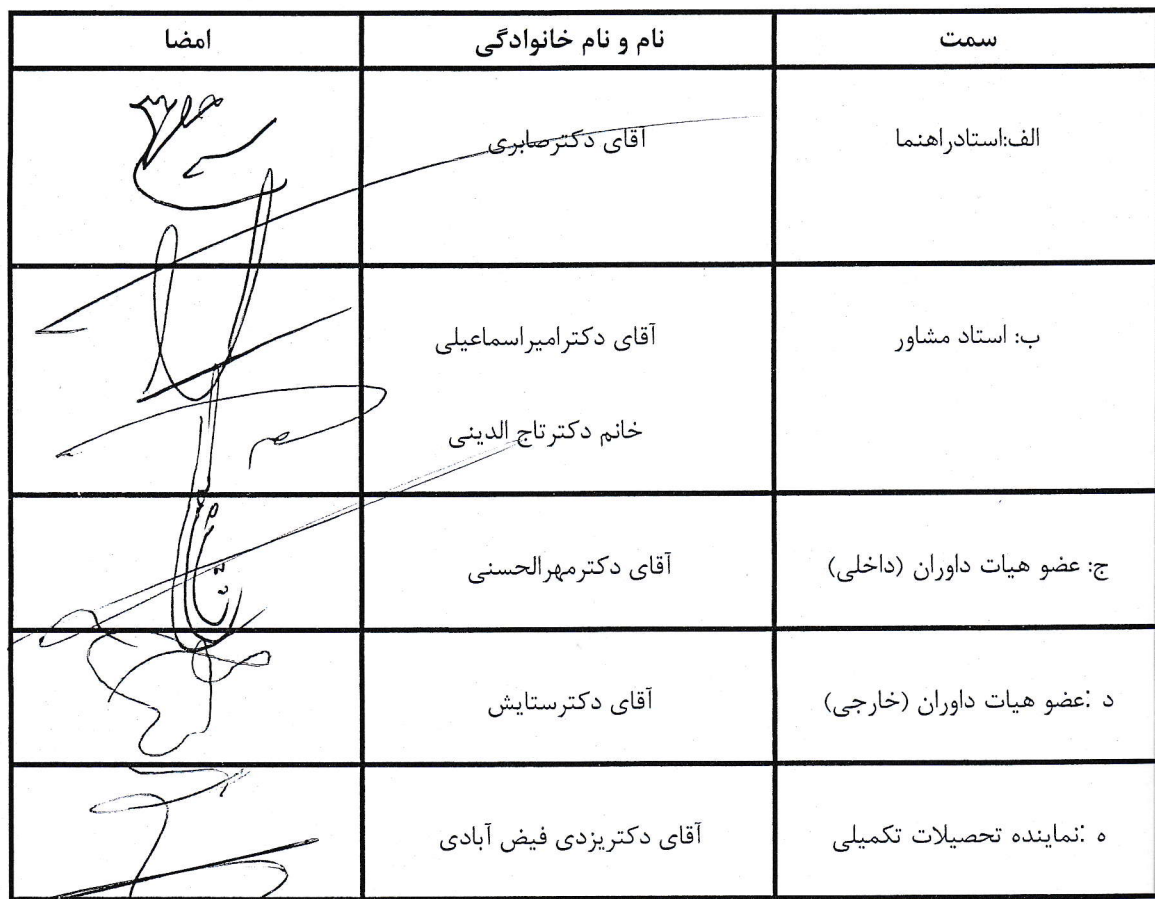 سمت نام و نام خانوادگی امضا
الف:استادراهنما آقای دکترصابری
ب: استاد مشاور آقای دکترامیراسماعیلی
خانم دکترتاج الدینی
ج: عضو هیات داوران (داخلی) آقای دکترمهرالحسنی
د :عضو هیات داوران (خارجی) آقای دکترستایش
ه :نماینده تحصیلات تکمیلی آقای دکتریزدی فیض آبادی